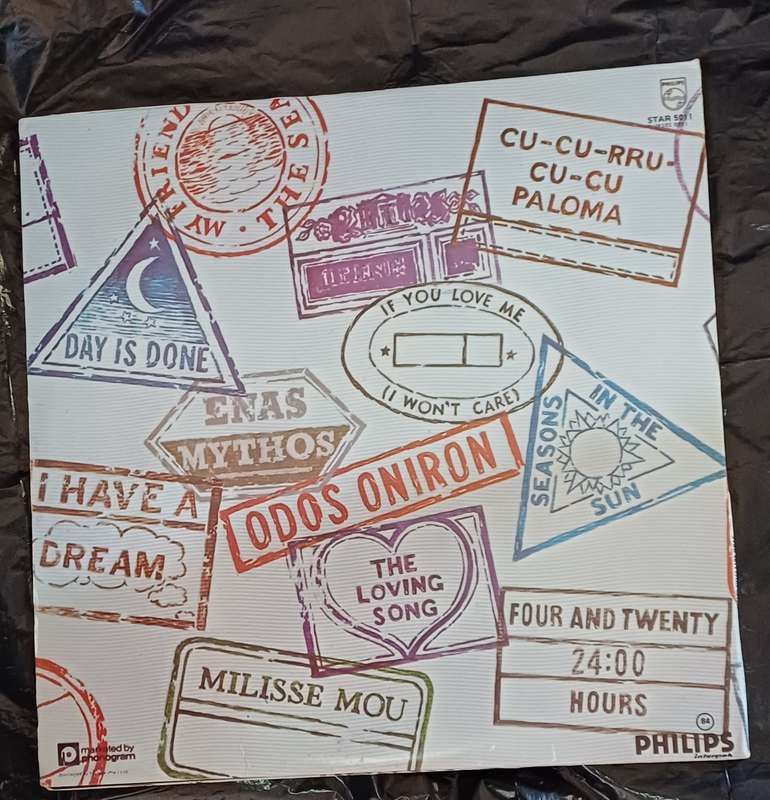 PHILIPS
STAR 5011
MY FRIEND
THE SEA
CU-CU-RRU-
CU-CU
PALOMA
IF YOU LOVE ME
(I WON'T CARE)
DAY IS DONE
ENAS
MYTHOS
SEASONS
IN THE
SUN
I HAVE A
DREAM
ODOS ONIRON
THE
LOVING
SONG
FOUR AND TWENTY
24:00
HOURS
MILISSE MOU
marketed by
phonogram
84
PHILIPS